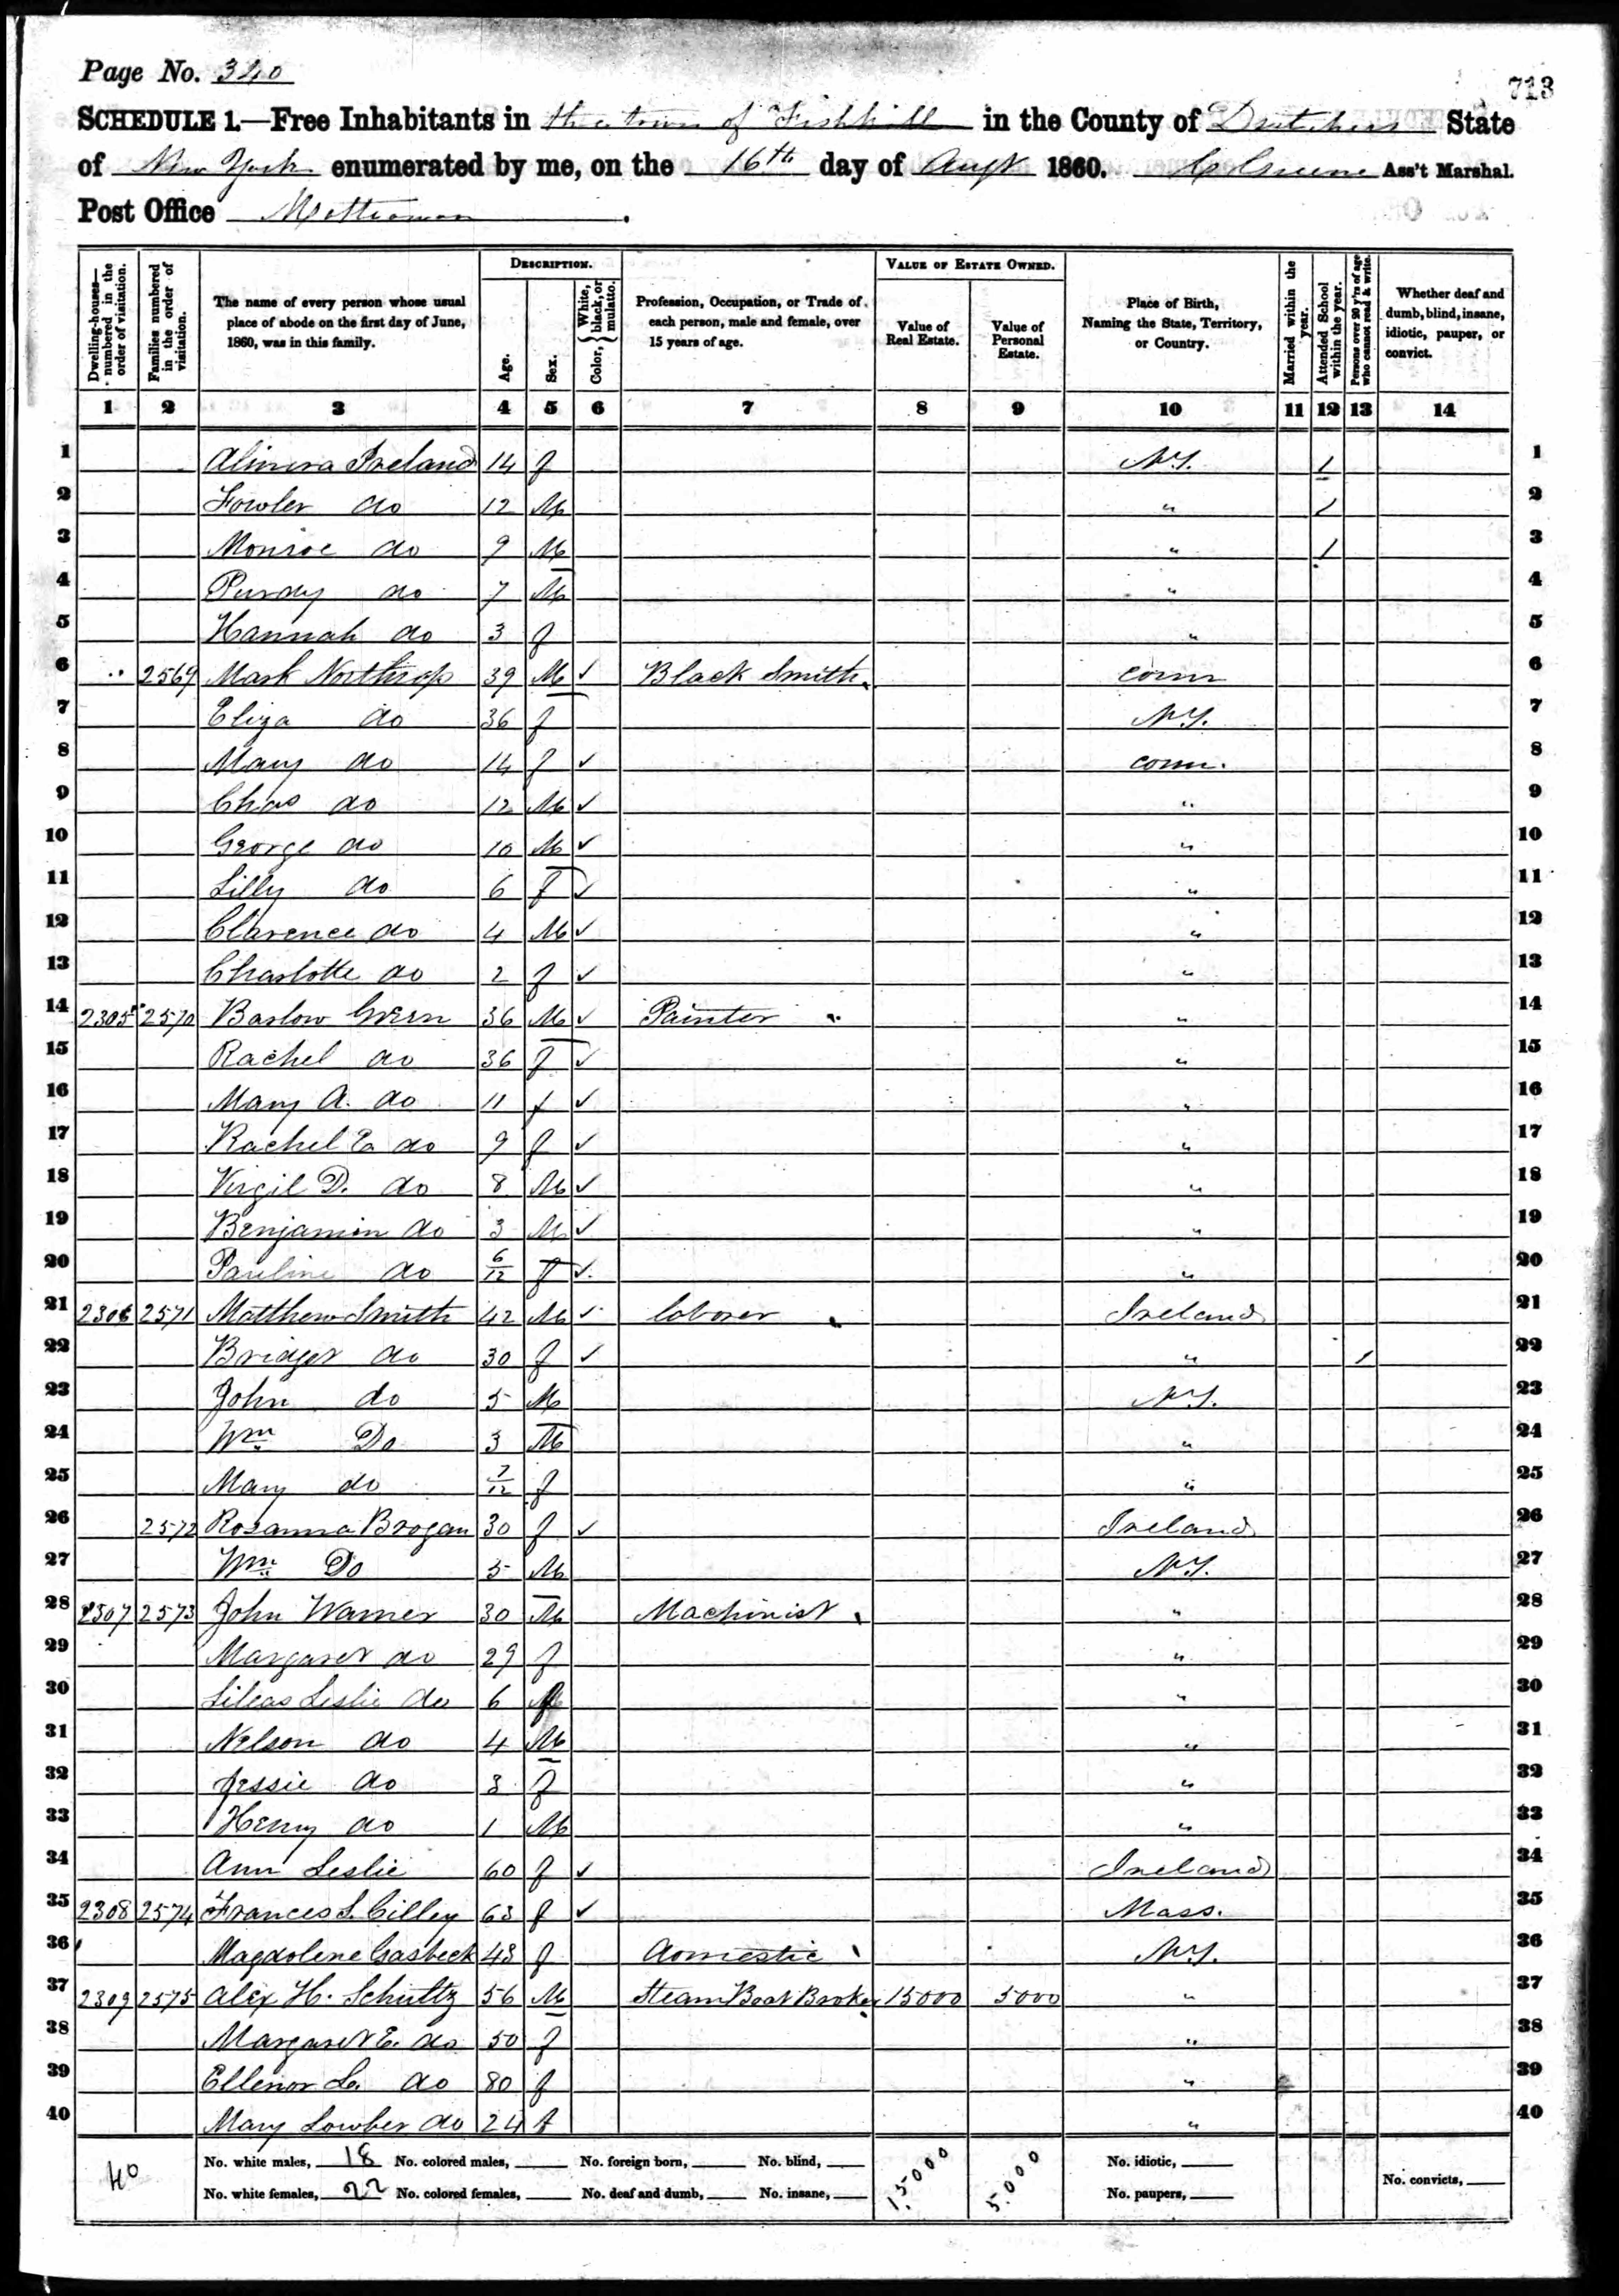 Page No. 340
713
SCHEDULE 1.—Free Inhabitants in the town of Fishkill in the County of Dutchess State
of New York enumerated by me, on the 16th day of Augt 1860. Ass't Marshal.
Post Office Matteawan.
Dwelling-houses—numbered in the order of visitation.
Families numbered in the order of visitation.
The name of every person whose usual place of abode on the first day of June, 1860, was in this family.
DESCRIPTION.
Age.
Sex.
Color, { White, black, or mulatto.
Profession, Occupation, or Trade of each person, male and female, over 15 years of age.
VALUE OF ESTATE OWNED.
Value of Real Estate.
Value of Personal Estate.
Place of Birth, Naming the State, Territory, or Country.
Married within the year.
Attended School within the year.
Persons over 20 y'rs of age who cannot read & write.
Whether deaf and dumb, blind, insane, idiotic, pauper, or convict.
1 2 3 4 5 6 7 8 9 10 11 12 13 14
1 Almira Ireland 14 f N.Y. 1 1
2 Fowler do 12 M " 1 2
3 Monroe do 9 M " 1 3
4 Purdy do 7 M " 4
5 Hannah do 3 f " 5
6 " 2569 Mark Northrop 39 M ✓ Black Smith conn 6
7 Eliza do 36 f N.Y. 7
8 Mary do 14 f ✓ conn. 8
9 Chas do 12 M ✓ " 9
10 George do 10 M ✓ " 10
11 Lilly do 6 f ✓ " 11
12 Clarence do 4 M ✓ " 12
13 Charlotte do 2 f ✓ " 13
14 2305 2570 Barlow Green 36 M ✓ Painter " 14
15 Rachel do 36 f ✓ " 15
16 Mary A. do 11 f ✓ " 16
17 Rachel E do 9 f ✓ " 17
18 Virgil D. do 8 M ✓ " 18
19 Benjamin do 3 M ✓ " 19
20 Pauline do 6/12 f ✓ " 20
21 2306 2571 Matthew Smith 42 M ✓ laborer Ireland 21
22 Bridget do 30 f ✓ " 1 22
23 John do 5 M N.Y. 23
24 Wm Do 3 M " 24
25 Mary do 7/12 f " 25
26 2572 Rosanna Brogan 30 f ✓ Ireland 26
27 Wm Do 5 M N.Y. 27
28 2307 2573 John Warner 30 M Machinist " 28
29 Margaret do 29 f " 29
30 Lileas Leslie do 6 f " 30
31 Nelson do 4 M " 31
32 Jessie do 3 f " 32
33 Henry do 1 M " 33
34 Ann Leslie 60 f ✓ Ireland 34
35 2308 2574 Frances L. Cilley 63 f ✓ Mass. 35
36 Magdolene Gasbeck 43 f domestic N.Y. 36
37 2309 2575 Alex H. Schultz 56 M Steam Boat Broker 15000 5000 " 37
38 Margaret E. do 50 f " 38
39 Ellenor L. do 80 f " 39
40 Mary Lowber do 24 f " 40
40
No. white males, 18 No. colored males, No. foreign born, No. blind, 15000 5000 No. idiotic,
No. white females, 22 No. colored females, No. deaf and dumb, No. insane, No. paupers, No. convicts,